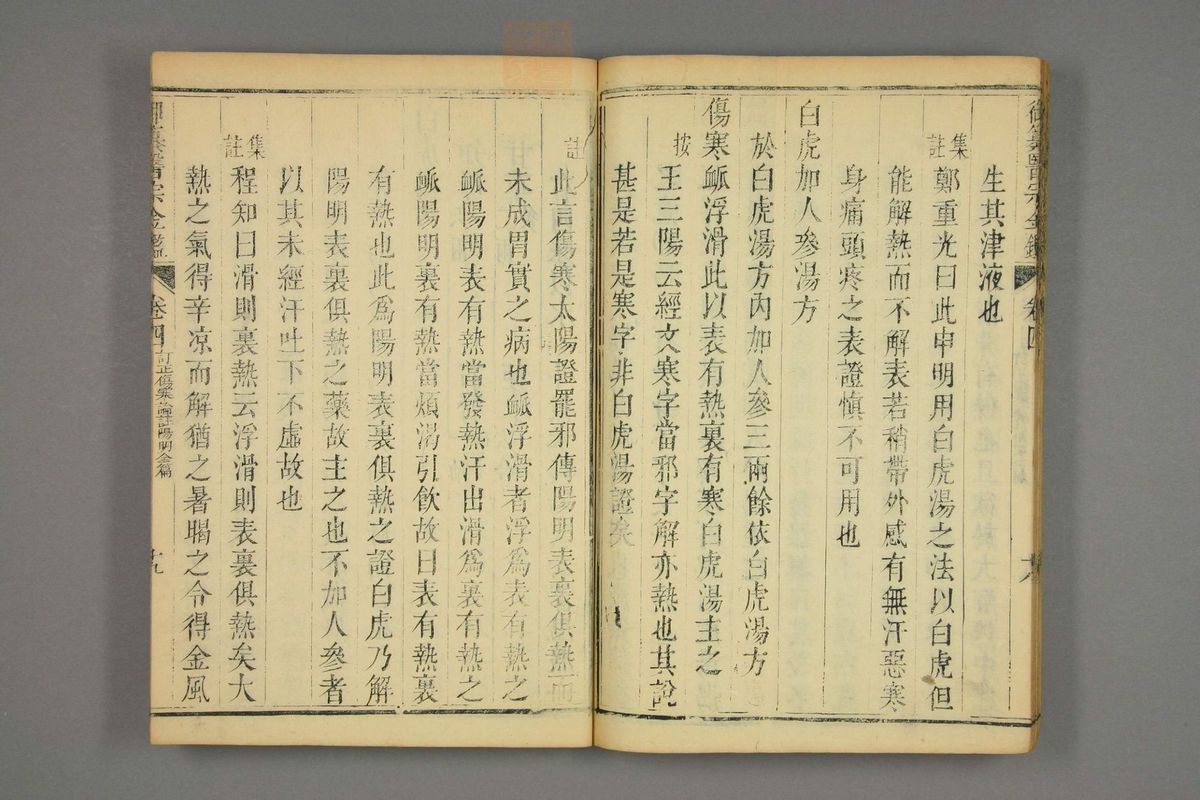 御纂醫宗金鑑 卷四 六
生其津液也
集註
鄭重光曰此申明用白虎湯之法以白虎但
能解熱而不解表若稍帶外感有無汗惡寒
身痛頭疼之表證慎不可用也
白虎加人參湯方
於白虎湯方內加人參三兩餘依白虎湯方
傷寒䘑浮滑此以表有熱裏有寒白虎湯主之
按
王三陽云經文寒字當邪字解亦熱也其說
甚是若是寒字非白虎湯證矣
註
此言傷寒太陽證罷邪傳陽明表裏俱熱而
未成胃實之病也䘑浮滑者浮爲表有熱之
䘑陽明表有熱當發熱汗出滑爲裏有熱之
䘑陽明裏有熱當煩渴引飲故曰表有熱裏
有熱也此爲陽明表裏俱熱之證白虎乃解
陽明表裏俱熱之藥故主之也不加人參者
以其未經汗吐下不虛故也
集註
程知曰滑則裏熱云浮滑則表裏俱熱矣大
熱之氣得辛凉而解猶之暑暍之令得金風
御纂醫宗金鑑 卷四 訂正傷寒論註陽明全篇 十九